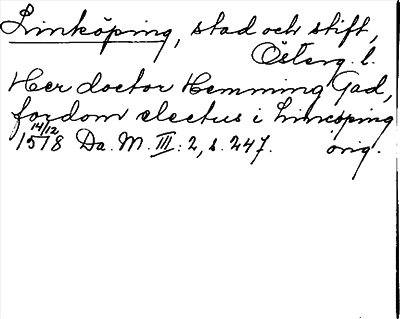 Linköping, stad och stift,
Österg. l.
Her doctor Hemming Gad,
fordom electus i Lincöping
14/12
1518 Da. M. III: 2, s. 247. orig.